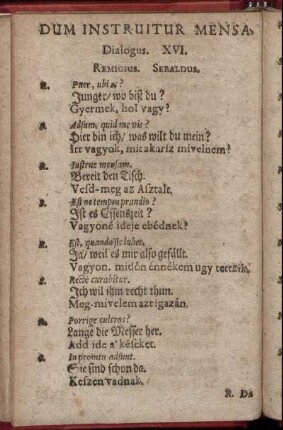 DUM INSTRUITUR MENSA,
Dialogus. XVI.
REMIGIUS. SEBALDUS.
R. Puer, ubi es?
Junger/ wo bist du?
Gyermek, hol vagy?
S. Adsum, quid me vis?
Hier bin ich/ was wilt du mein?
Itt vagyok, mit akarsz mívelnem?
R. Instrue mensam.
Bereit den Tisch.
Vesd-meg az Asztalt.
S. Est ne tempus prandio?
Ist es Essenszeit?
Vagyoné ideje ebédnek?
R. Est, quando sic lubet.
Ja/ weil es mir also gefällt.
Vagyon. midőn énnékem ugy tettzik.
S. Recte curabitur.
Ich wil ihm recht thun.
Meg-mivelem azt igazán.
R. Porrige cultros?
Lange die Messer her.
Add ide a' késeket.
S. In promtu adsunt.
Sie sind schon da.
Keszen vadnak.
R. Da